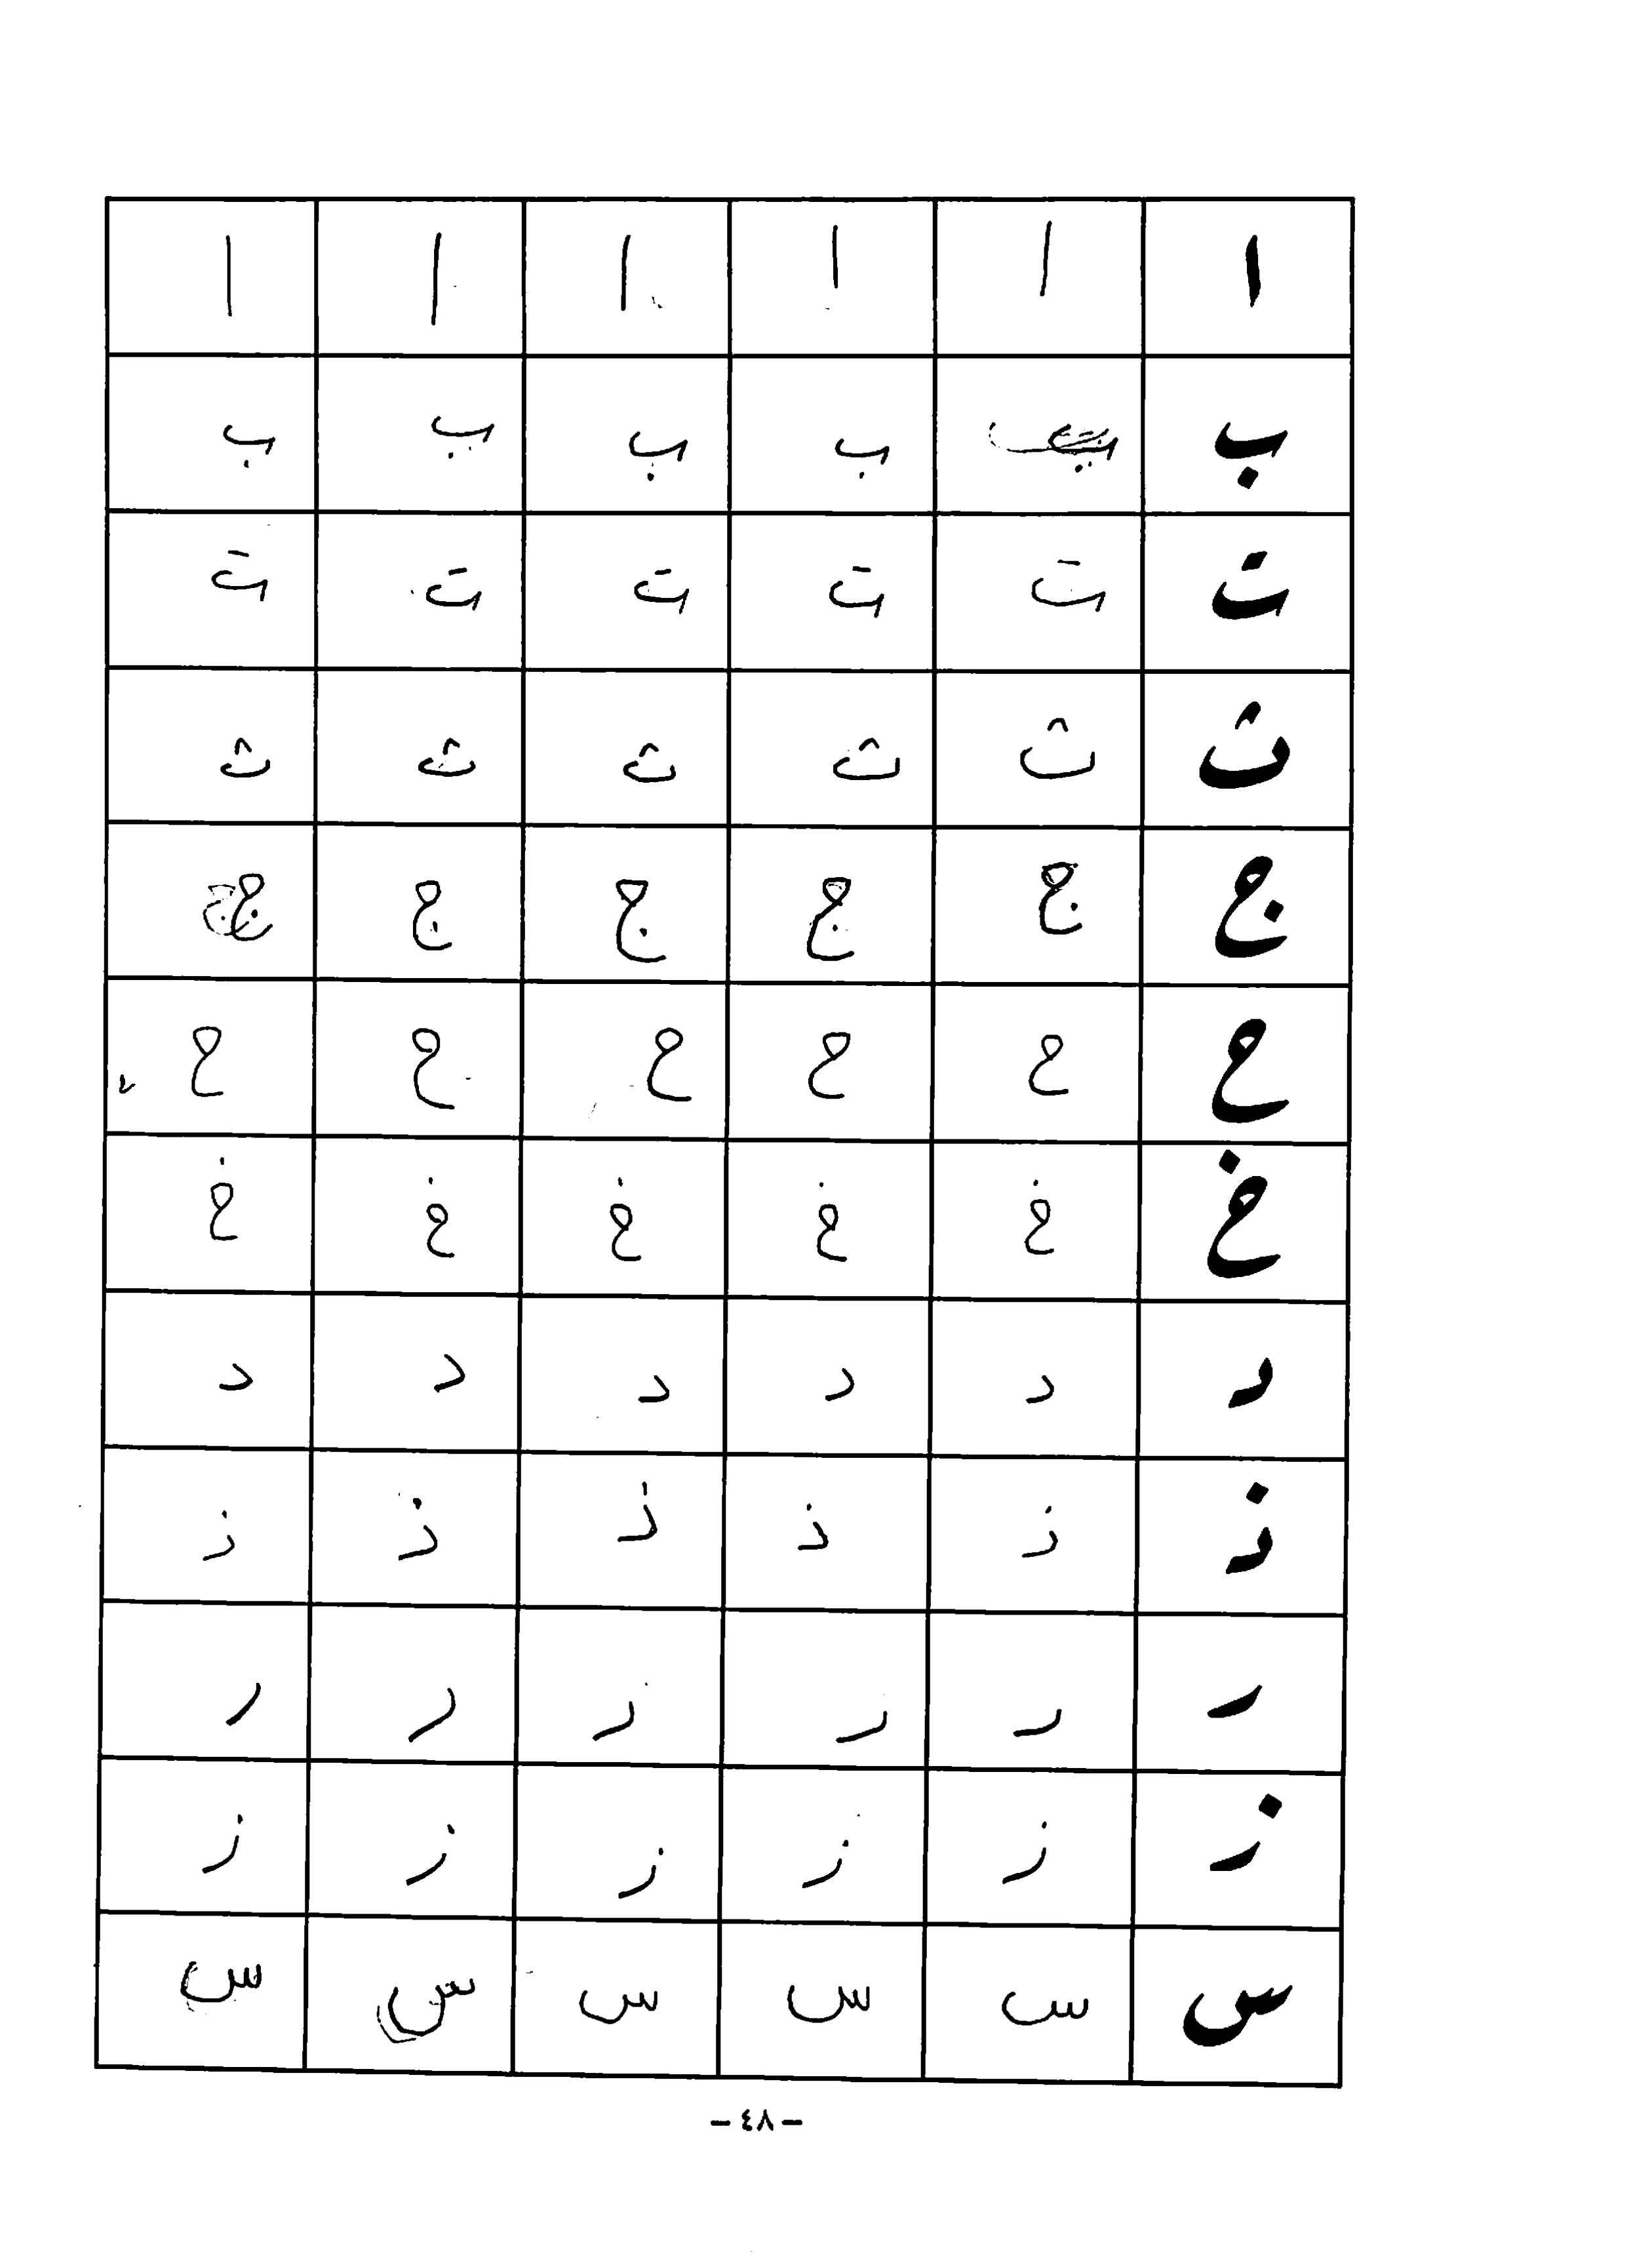 ا ا ا ا ا ا
ب ب ب ب ب ب
ت ت ت ت ت ت
ث ث ث ث ث ث
ج ج ج ج ج ج
ح ح ح ح ح ح
خ خ خ خ خ خ
د د د د د د
ذ ذ ذ ذ ذ ذ
ر ر ر ر ر ر
ز ز ز ز ز ز
س س س س س س
- ٤٨ -